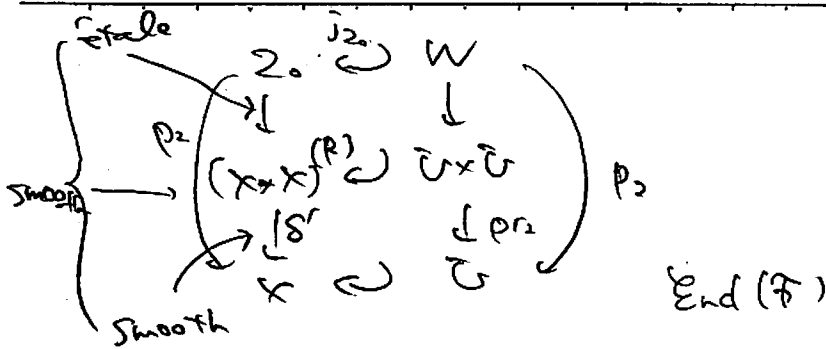 étale Z₀ j_{Z₀} W
p₂
smooth (X×X)^{(R)} U×U p₂
δ^r pr₂
X U
smooth End(F)